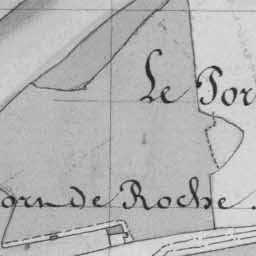 Le Por
orn de Roche.